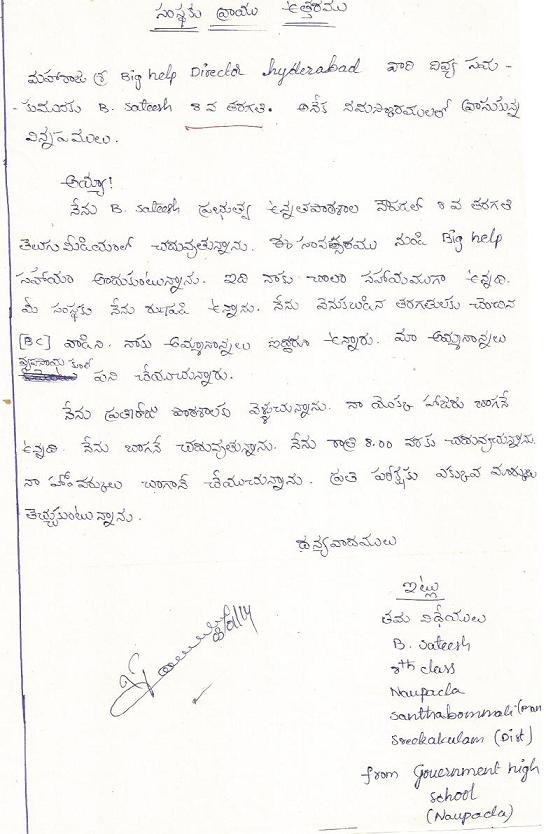 సంస్థకు వ్రాయు ఉత్తరము
మహారాజ శ్రీ Big help Director hyderabad వారి దివ్య సము -
- కుమునకు B. sateesh 8 వ తరగతి. అనేక నమస్కారములతో వ్రాసుకున్న
విన్నపములు.
అయ్యా!
నేను B. sateesh ప్రభుత్వ ఉన్నతపాఠశాల నౌపడలో 8 వ తరగతి
తెలుగు మీడియంలో చదువుతున్నాను. ఈ సంవత్సరము నుండి Big help
సహాయం అందుకుంటున్నాను. ఇది నాకు చాలా సహాయముగా ఉన్నది.
మీ సంస్థకు నేను ఋణపడి ఉన్నాను. నేను వెనుకబడిన తరగతులకు చెందిన
[BC] వాడిని. నాకు అమ్మానాన్నలు ఇద్దరూ ఉన్నారు. మా అమ్మానాన్నలు
వ్యవసాయ కూలి
పని చేయుచున్నారు.
నేను ప్రతిరోజు పాఠశాలకు వెళ్ళుచున్నాను. నా యొక్క హాజరు బాగానే
ఉన్నది. నేను బాగానే చదువుతున్నాను. నేను రాత్రి 8.00 వరకు చదువుచున్నాను.
నా హోంవర్కులు బాగానే చేయుచున్నాను. ప్రతి పరీక్షకు ఎక్కువ మార్కులు
తెచ్చుకుంటున్నాను.
ధన్యవాదములు
ఇట్లు
తమ విధేయులు
B. sateesh
8th class
Naupada
santhabommali (Man
Sreekakulam (Dist)
from Government high
school
(Naupada)